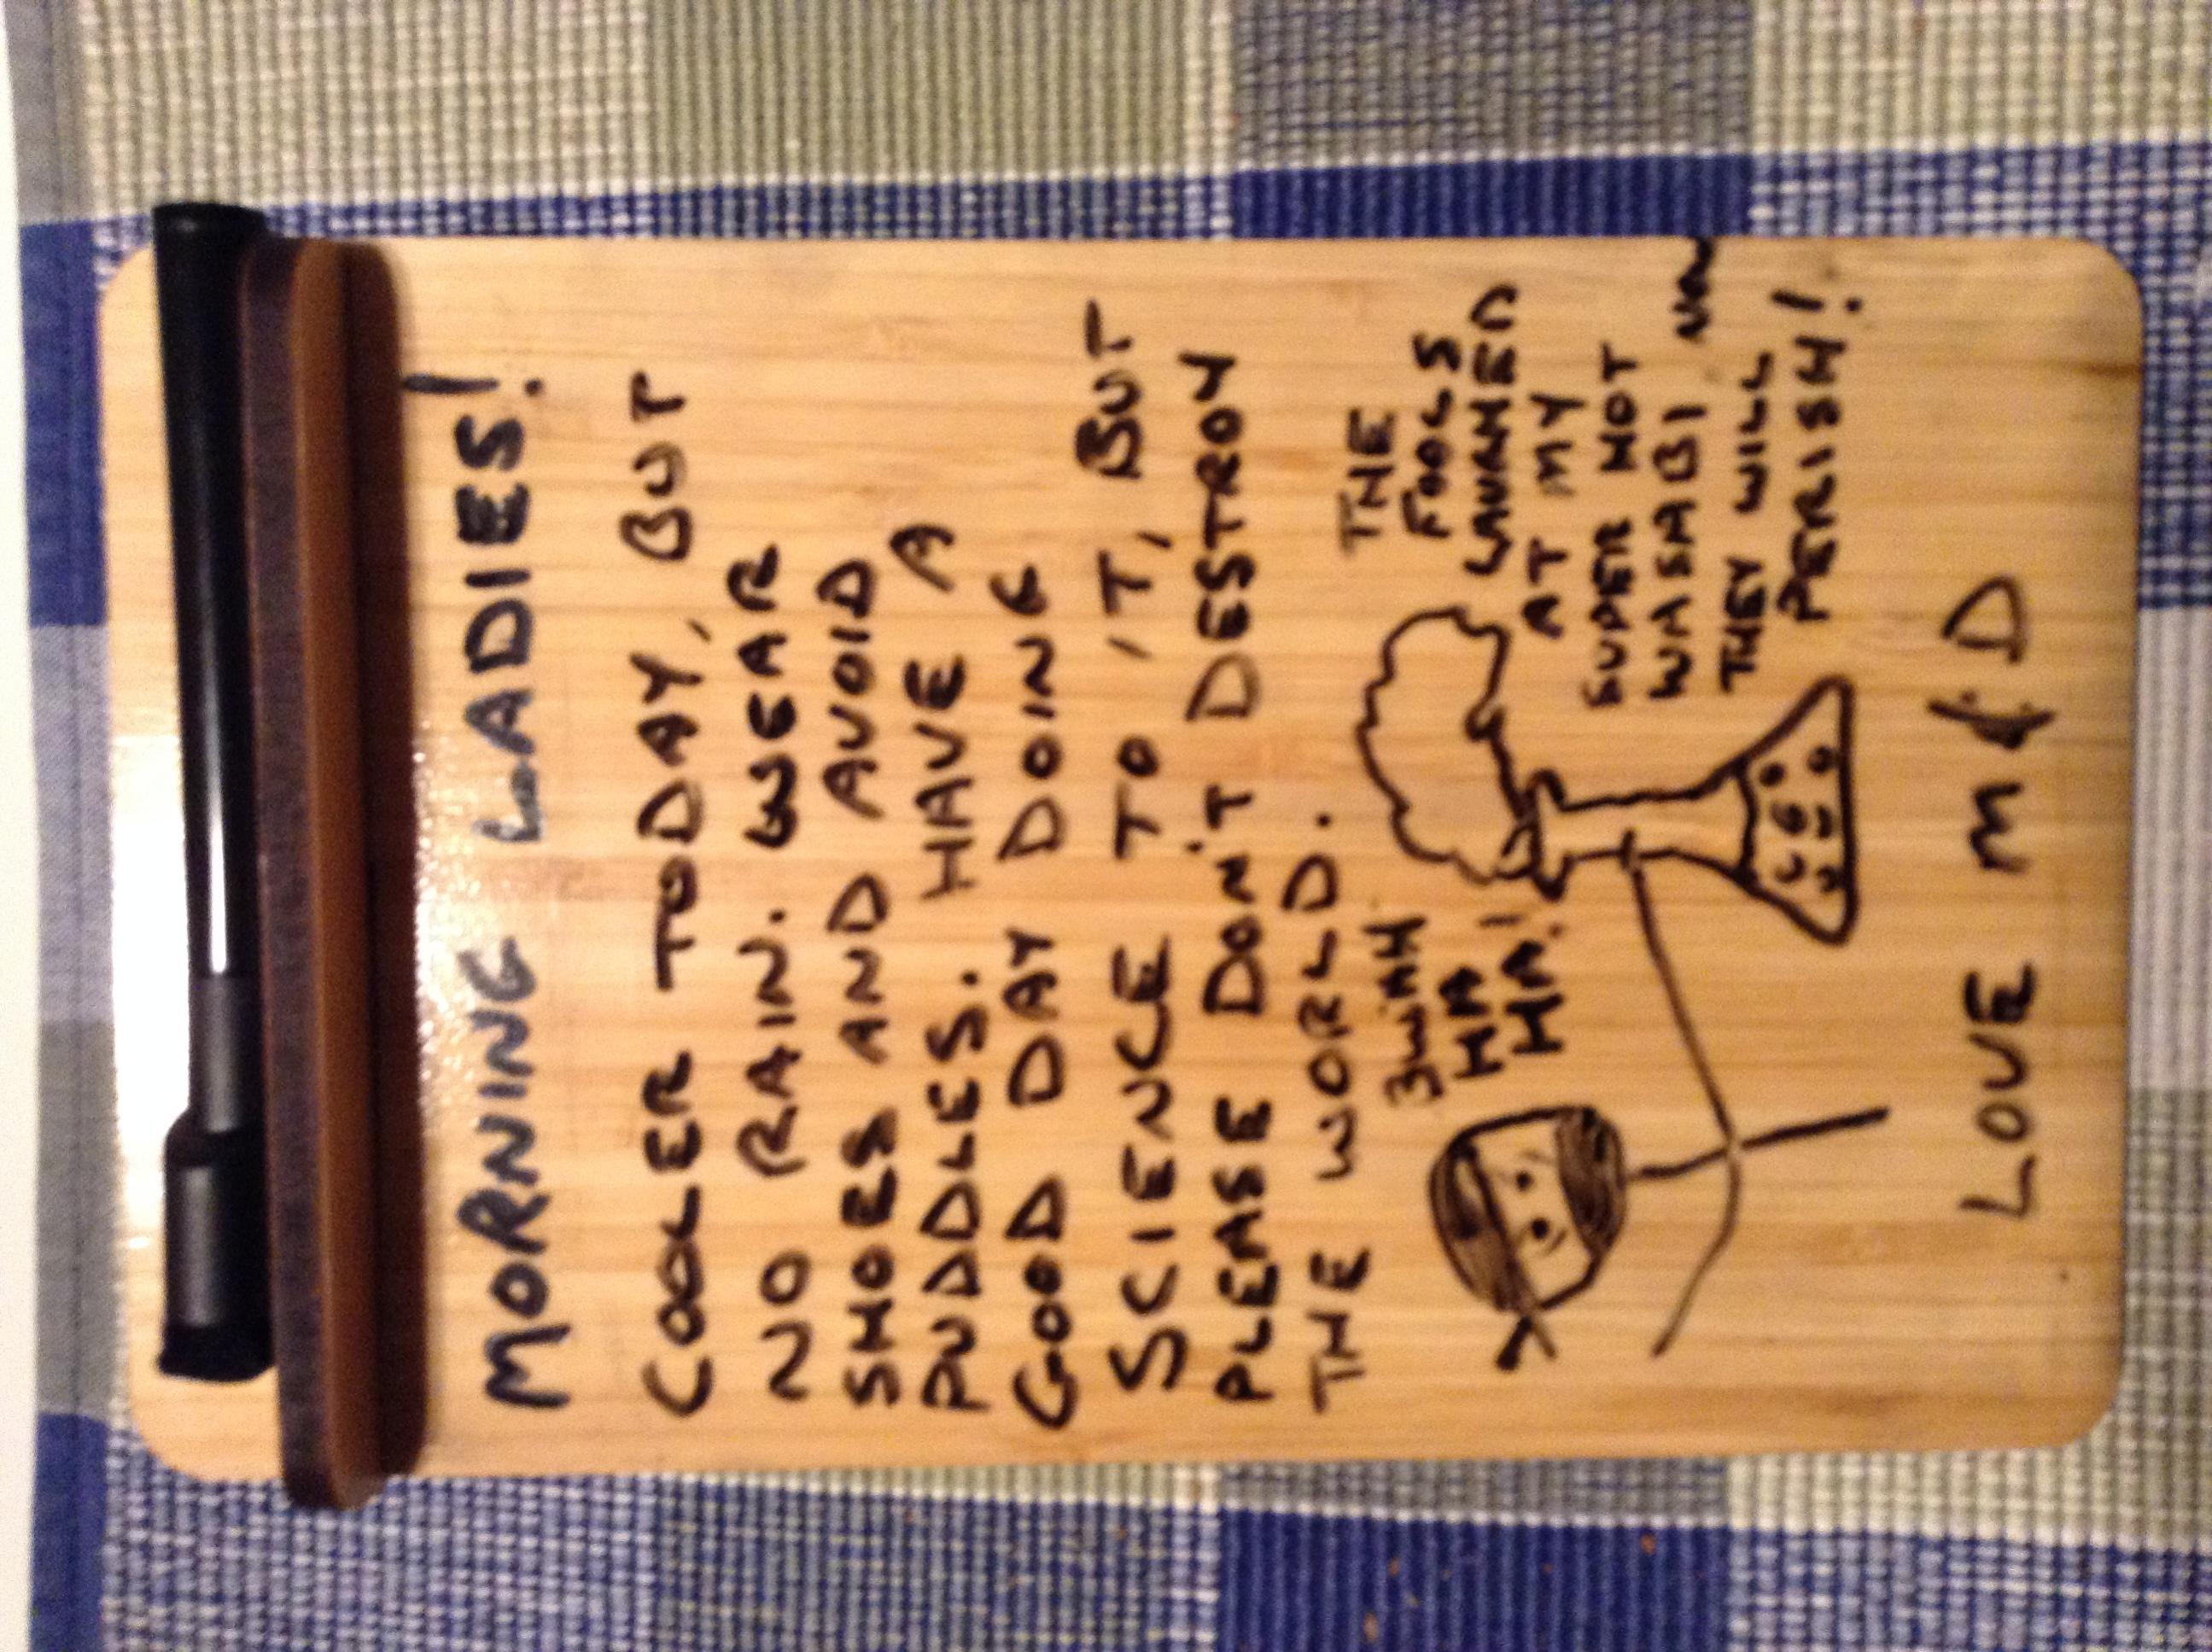 MORNING LADIES!
COOLER TODAY, BUT
NO RAIN. WEAR
SHOES AND AVOID
PUDDLES. HAVE A
GOOD DAY DOING
SCIENCE TO IT, BUT
PLEASE DON'T DESTROY
THE WORLD.
BWAH
HA
HA!
THE
FOOLS
LAUGHED
AT MY
SUPER HOT
WASABI NOW
THEY WILL
PERISH!
LOVE M & D